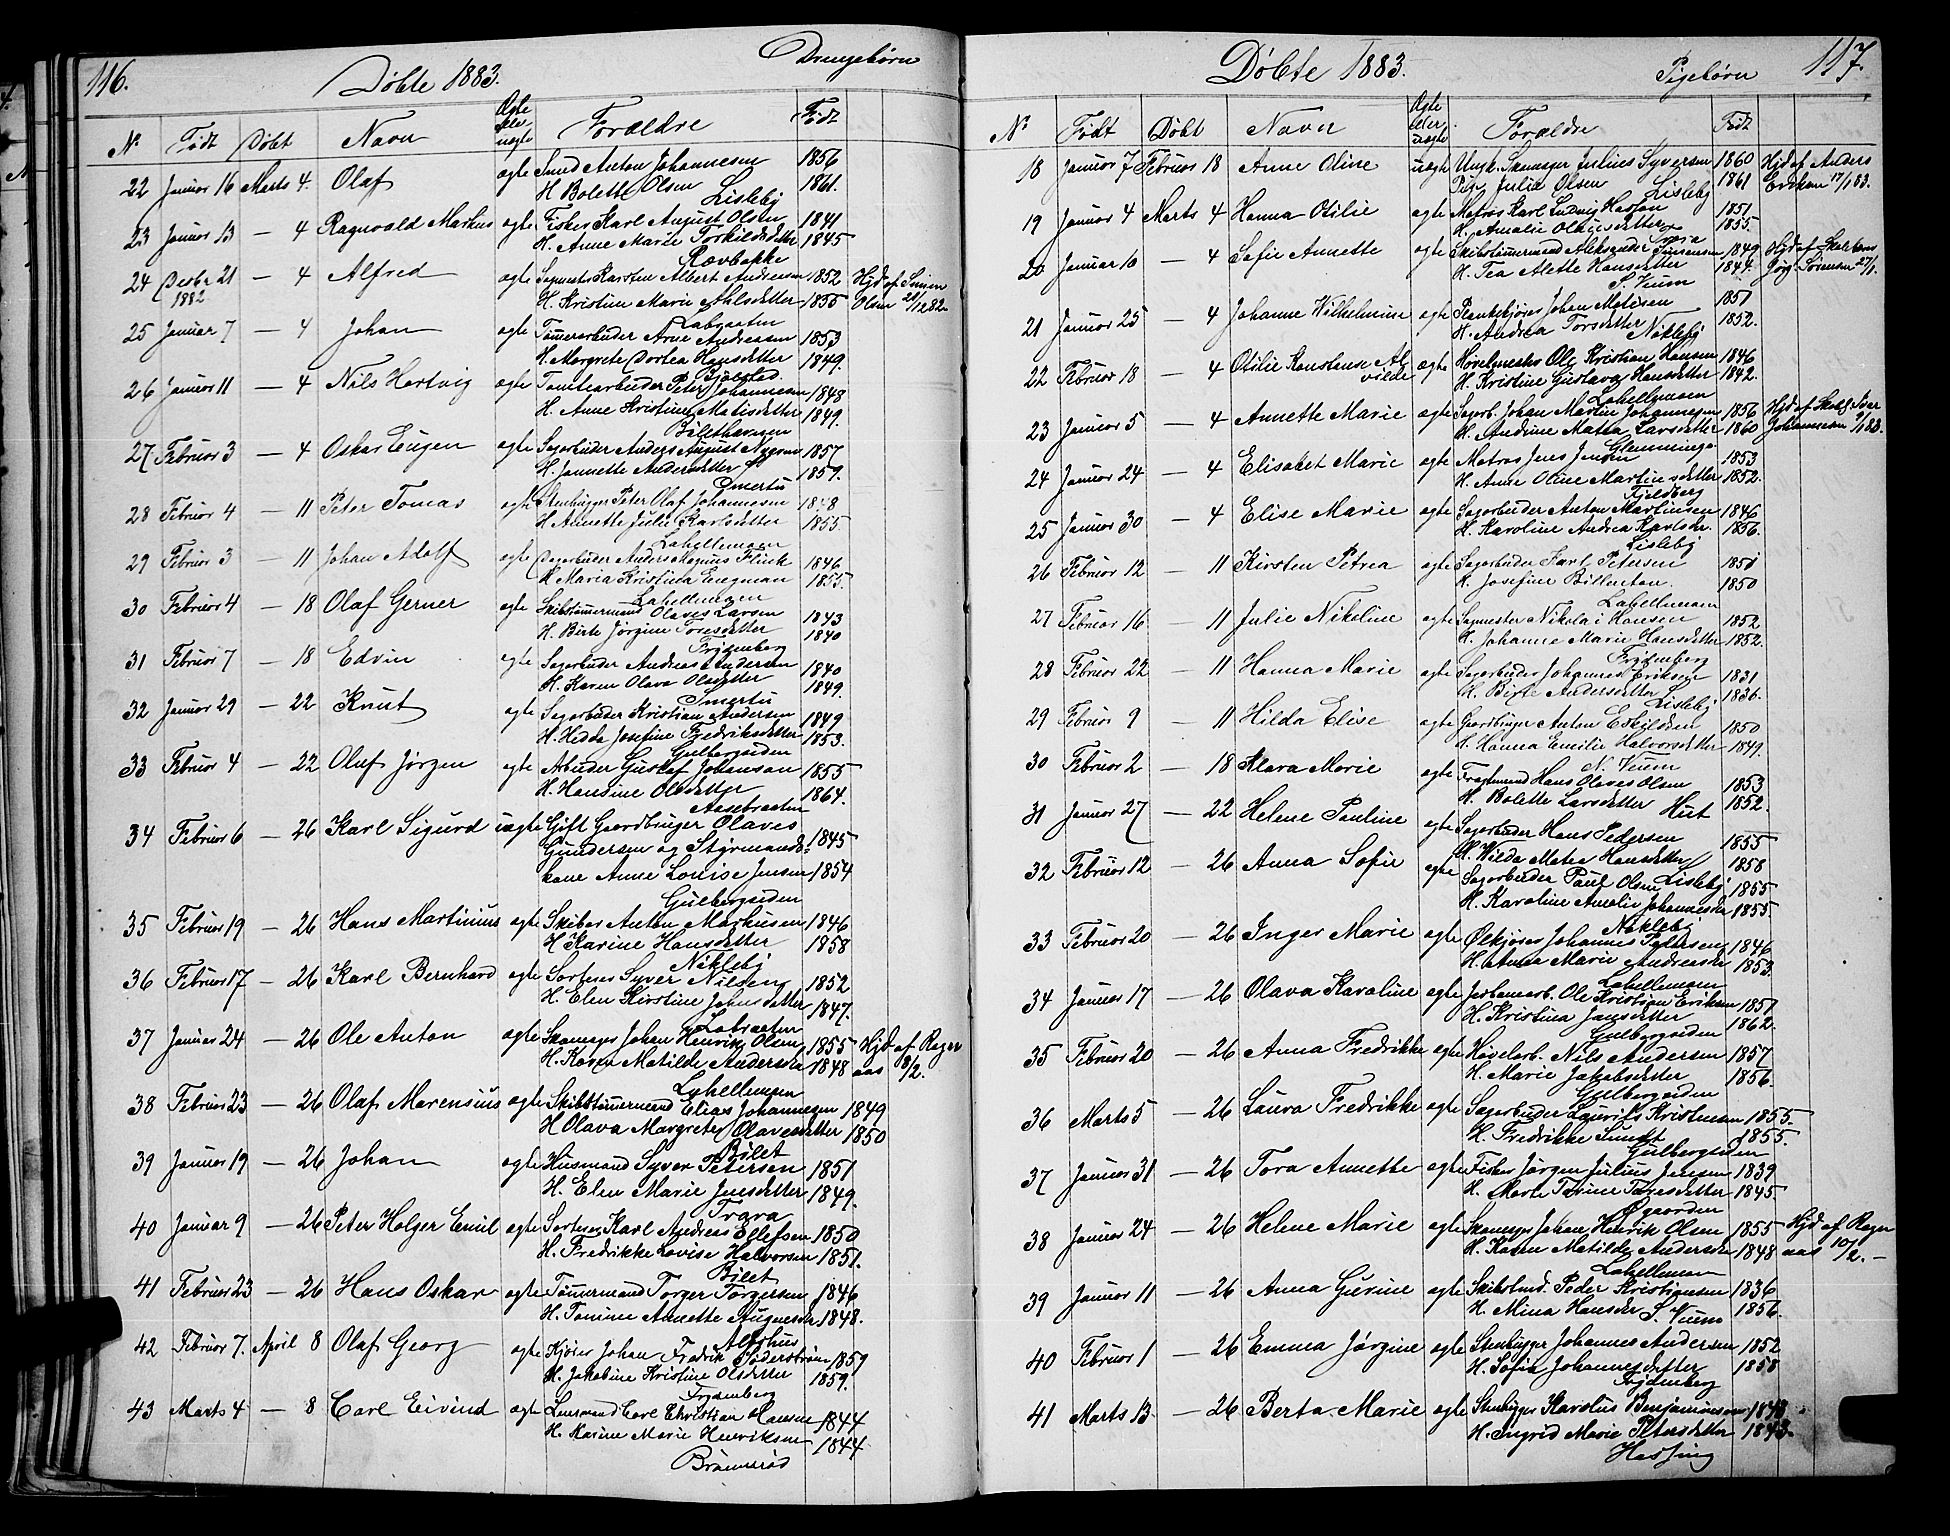 116.
Døbte 1883.
Drengebørn
Nº Født Døbt Navn Ægte eller uægte Forældre Født
22 Januar 16 Marts 4. Olaf ægte Smed Anton Johannesen 1856
H. Bolette Olsen 1861.
Lisleby
23 Januar 13 — 4 Ragnvald Markus ægte Fisker Karl August Olsen 1841
H. Anne Marie Torkildsdatter 1845
Ravbakke
24 Desbr 21 — 4 Alfred ægte Sagmester Karsten Albert Andersen 1852 Hjd af Simen
1882 H. Kristine Marie Ahlsdatter 1855 Olsen 21/12 82.
Labraaten
25 Januar 7 — 4 Johan ægte Tømmerarbeider Arne Andersen 1853
H. Margrete Dortea Hansdatter 1849.
Bjølstad
26 Januar 11 — 4 Nils Hartvig ægte Tomtearbeider Peter Johannesen 1848
H. Anne Kristine Matisdatter 1849.
27 Februar 3 — 4 Oskar Eugen ægte Sagarbeider Anders August 1857
H. Jannette Andersdatter 1859.
Smertu
28 Februar 4 — 11 Peter Tomas ægte Stenhugger Peter Olaf Johannesen 1858
H. Annette Julie Karlsdatter 1855
Labellemoen
29 Februar 3 — 11 Johan Adolf ægte Sagarbeider Anders Magnus Flink 1846
H. Maria Kristina Engman 1855.
Labellemoen
30 Februar 4 — 18 Olaf Gerner ægte Skibstømmermand Olaves Larsen 1843
H. Birte Jørgine Toresdatter 1840
Frydenberg
31 Februar 7 — 18 Edvin ægte Sagarbeider Andreas Andersen 1840
H. Karen Olava Olsdatter 1849.
Smertu
32 Januar 29 — 22 Knut ægte Sagarbeider Kristian Andersen 1849
H. Hedda Josefine Fredriksdatter 1853.
Gulbergsiden
33 Februar 4 — 22 Oluf Jørgen ægte Arbeider Gustaf Johanson 1855
H. Hansine Olsdatter 1864.
Aasebraaten
34 Februar 6 — 26 Karl Sigurd uægte Gift Gaardbruger Olaves
Gundersen og Styrmands- 1845
kone Anne Louise Jensen 1854
Gulbergsiden
35 Februar 19 — 26 Hans Martinius ægte Skibar Anton Markusen 1846
H. Karine Hansdatter 1858
Nøkleby
36 Februar 17 — 26 Karl Bernhard ægte Sorterer Syver Nilsen 1852
H. Elen Kirstine Johnsdatter 1847.
Labraaten
37 Januar 24 — 26 Ole Anton ægte Skomager Johan Henrik Olsen 1855 Hjd af Ragn
H. Karen Matilde Andersda 1848 aas 10/2.
Labellemoen
38 Februar 23 — 26 Olaf Marensius ægte Skibstømmermand Elias Johannesen 1849
H. Olava Margrete Olavesdatter 1850
Bilet
39 Januar 19 — 26 Johan ægte Husmand Syver Petersen 1851
H. Elen Marie Jensdatter 1849.
Trara
40 Januar 9 — 26 Peter Holger Emil ægte Sorterer Karl Andreas Ellefsen 1850
H. Fredrikke Lovise Halvorsen 1851.
Bilet
41 Februar 23 — 26 Hans Oskar ægte Tømmermand Torger Torgersen 1846
H. Tomine Annette Augnesdr 1848.
42 Februar 7. April 8 Olaf Georg ægte Kjører Johan Fredrik Söderström 1859
H. Jakobine Kristine Olsdatter 1859.
Frydenberg
43 Marts 4 — 8 Carl Eivind ægte Lensmand Carl Christian Hansen 1844
H. Karine Marie Henriksen 1844
117.
Døbte 1883.
Pigebørn
Nº Født Døbt Navn Ægte eller uægte Forældre Født
18 Januar 7 Februar 18 Anne Oline uægte Ungk. Skomager Julius Syversen 1860 Hjd af Anders
Pige Julie Olsen 1861 Eriksen 17/1 83.
Lisleby
19 Januar 4 Marts 4 Hanna Otilie ægte Matros Karl Ludvig Hansen 1851
H. Amalie Olavesdatter 1855.
20 Januar 10 — 4 Sofie Annette ægte Skibstømmermand Aleksander Jørgensen 1849
H. Tea Alette Hansdatter 1844. Jørg. Sørensen 27/1.
S. Veum
21 Januar 25 — 4 Johanne Wilhelmine ægte Plankekjører Johan Matisen 1851
H. Andrea Torsdatter 1852.
Nøkleby
22 Februar 18 — 4 Otilie Konstanse Al-
vilde ægte Høvelmester Ole Kristian Hansen 1846
H. Kristine Gustava Hansdatter 1842.
Labellmoen
23 Januar 5 — 4 Annette Marie ægte Sagarb. Johan Martin Johannesen 1856 Hjd af Skolh. Iver
H. Andrine Matea Larsdatter 1860 Johannesen 9/1 83.
Glemminge
24 Januar 24 — 4 Elisabet Marie ægte Matros Jens Jensen 1853
H. Anne Oline Martinsdatter 1852.
Fjeldberg
25 Januar 30 — 4 Elise Marie ægte Sagarbeider Anton Martinsen 1846
H. Karoline Andrea Karlsdr. 1856.
Lisleby
26 Februar 12 — 11 Kirsten Petrea ægte Sagarbeider Karl Petersen 1851
H. Josefine Billenton 1850
Labellemoen
27 Februar 16 — 11 Julie Nikoline ægte Sagmester Nikolai Hansen 1852
H. Johanne Marie Hansdatter 1852.
Frydenberg
28 Februar 22 — 11 Hanna Marie ægte Sagarbeider Johannes Eriksen 1831
H. Birte Andersdatter 1836.
Lisleby
29 Februar 9 — 11 Hilda Elise ægte Gaardbruger Anton Eskildsen 1850
H. Hanna Emilie Halvorsdatter 1849.
N. Veum
30 Februar 2 — 18 Klara Marie ægte Fragtemand Hans Olaves Olsen 1853
H. Bolette Larsdatter 1852.
Hut
31 Januar 27 — 22 Helene Pauline ægte Sagarbeider Hans Pedersen 1855
H. Wilda Matea Hansdatter 1858
Lisleby
32 Februar 12 — 26 Anna Sofie ægte Sagarbeider Paul Olsen 1855
H. Karoline Amalie Johannesdr 1855.
Nøkleby
33 Februar 20 — 26 Inger Marie ægte Ølkjører Johannes Pedersen 1846
H. Anna Marie Andreasdr 1853.
Labellemoen
34 Januar 17 — 26 Olava Karoline ægte Jernbanearb. Ole Kristian Eriksen 1857
H. Kristina Jansdatter 1862.
Gulbergsiden
35 Februar 20 — 26 Anna Fredrikke ægte Høvelarb. Nils Andersen 1857
H. Marie Jakobsdatter 1856.
Gulbergsiden
36 Marts 5 — 26 Laura Fredrikke ægte Sagarbeider Laurits Kristensen 1855.
H. Fredrikke Sundt 1855.
Gulbergsiden
37 Januar 31 — 26 Tora Annette ægte Fisker Jørgen Julius Jensen 1839
H. Marte Torine Toresdatter 1845
Øgaarden
38 Januar 24 — 26 Helene Marie ægte Skomager Johan Henrik Olsen 1855 Hjd af Ragn
H. Karen Matilde Andersdr 1848 aas 10/2.
Labellemoen
39 Januar 11 — 26 Anna Gurine ægte Skibstmd. Peder Kristiansen 1836
H. Mina Hansdr 1856.
S. Veum
40 Februar 1 — 26 Emma Jørgine ægte Stenhugger Johannes Andersen 1852
H. Sofie Johannesdatter 1858
Frydenberg
41 Marts 13 — 26 Berta Marie ægte Stenhugger Karolus Benjaminsen 1848.
H. Ingrid Marie Petersdatter 1843.